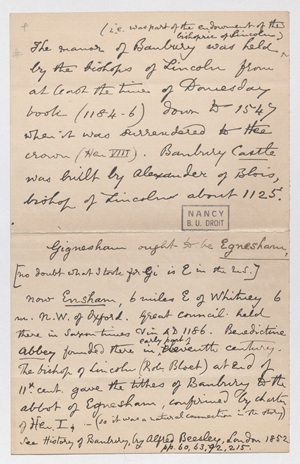 (i.e. was part of the endowment of the
bishopric of Lincoln)
The manor of Banbury was held
by the bishops of Lincoln from
at least the time of Domesday
book (1184-6) down to 1547
when it was surrendered to the
crown (Hen VIII). Banbury Castle
was built by Alexander of Blois,
bishop of Lincoln about 1125.
NANCY
B. U. DROIT
Gignesham ought to be Egnesham,
[no doubt what I took for Gi is E in the MS.]
now Ensham, 6 miles E of Whitney 6
m. N.W. of Oxford. Great council held
there in Saxon times & in AD 1186. Benedictine
Abbey founded there in early part of eleventh century.
The bishop of Lincoln (Rob. Bloet) at end of
11th cent. gave the tithes of Banbury to the
abbot of Egnesham, confirmed by charter
of Hen. I, - (so it was a natural connection in the story)
See History of Banbury, by Alfred Beesley, London 1852
pp. 60, 63, 92, 215.